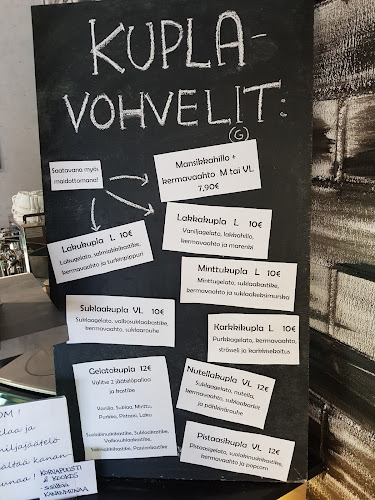 KUPLA-
VOHVELIT:
G
Saatavana myös
maidottomana!
Mansikkahillo +
kermavaahto M tai VL
7,90€
Lakkakupla L 10€
Vaniljagelato, lakkahillo,
kermavaahto ja marenki
Lakukupla L 10€
Lakugelato, salmiakkikastike,
kermavaahto ja turkinpippuri
Minttukupla L 10€
Minttugelato, suklaakastike,
kermavaahto ja suklaakeksimurska
Suklaakupla VL 10€
Suklaagelato, valkosuklaakastike,
kermavaahto, suklaarouhe
Karkkikupla L 10€
Purkkagelato, kermavaahto,
strösseli ja karkkikoitus
Gelatokupla 12€
Valitse 2 jäätelöpalloa
ja kastike
Vanilja, Suklaa, Minttu,
Purkka, Pistaasi, Laku
Suolakinuskikastike, Suklaakastike,
Valkosuklaakastike,
Salmiakkikastike, Pistaasikastike
Nutellakupla VL 12€
Suklaagelato, nutella,
kermavaahto, suklaakarkit
ja pähkinärouhe
Pistaasikupla VL 12€
Pistaasigelato, suolakinuskikastike,
kermavaahto ja popcorn
OM!
laa ja
niljajäätelö
ältää kanan-
unaa!